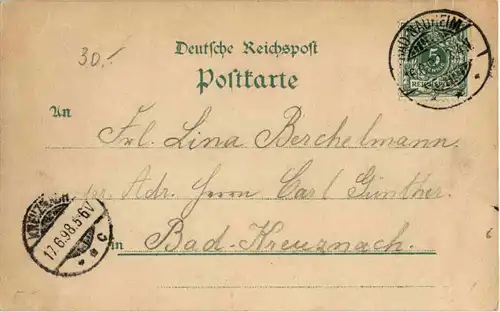 30.-
Deutsche Reichspost
Postkarte
BAD-NAUHEIM
5
An
Frl. Lina Berchelmann.
pr. Adr. Herrn Carl Günther.
in
Bad-Kreuznach.
KREUZNACH
17.6.98.5-6V
* * C